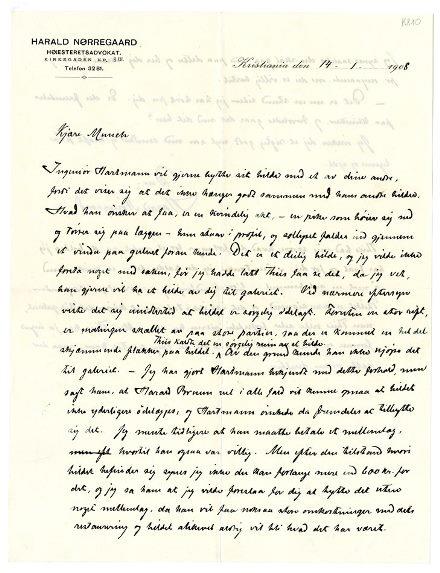 K 810
HARALD NØRREGAARD
HØIESTERETSADVOKAT.
KIRKEGADEN
Telefon 3281.
Kristiania den 14 - 1. 1908
Kjære Munch
Ingeniør Hartmann vil gjerne bytte sit bilde med et av dine andre,
fordi det viser sig at det ikke hænger godt sammen med hans andre bilder.
Hvad han ønsker at faa, er en kvindelig akt, - en pike som bøier sig ned
og tørrer sig paa læggen - hun staar i profil, og sollyset falder ind gjennem
et vindu paa gulvet foran hende. Det er et deilig bilde, og jeg vilde ikke
foreta noget med saken, før jeg hadde latt Thiis faa se det, da jeg vet,
han gjerne vil ha et bilde av dig til galeriet. Ved nærmere eftersyn
viste det sig imidlertid at bildet er sørgelig ødelagt. Foruten en stor rift,
er malingen skallet av paa store partier, saa der er kommet en hel del
skjæmmende flækker paa bildet. Thiis kaldte det en sørgelig ruin av et bilde.
Av den grund kunde han ikke kjøpe det
til galeriet. - Jeg har gjort Hartmann bekjendt med dette forhold men
sagt ham, at Harald Brun vel i alle fald vil kunne opnaa at bildet
ikke yderligere ødelægges, og Hartmann ønskede da fremdeles at tilbytte
sig det. Jeg mente tidligere at han maatte betale et mellemlag,
hvortil han ogsaa var villig. Men efter den tilstand hvori
bildet befinder sig synes jeg ikke du kan forlange mere end 600 kr. for
det, og jeg sa ham at jeg vilde foreslaa for dig at bytte det uten
noget mellemlag, da han vil faa noksaa store omkostninger med dets
restaurering og bildet allikevel aldrig vil bli hvad det har været.